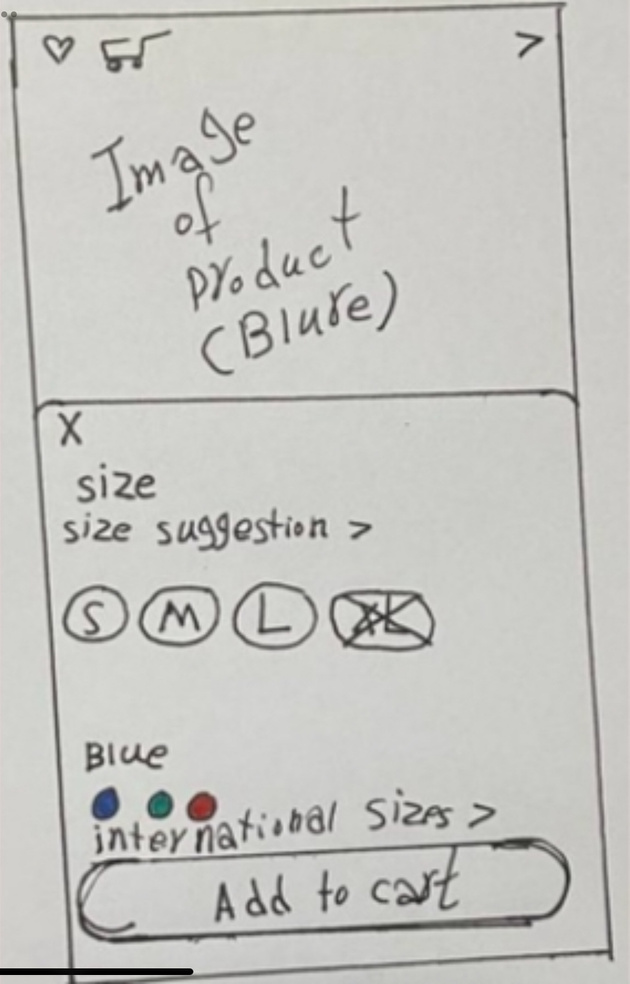 >
Image
of
product
(Blure)
X
size
size suggestion >
S M L XL
Blue
international sizes >
Add to cart